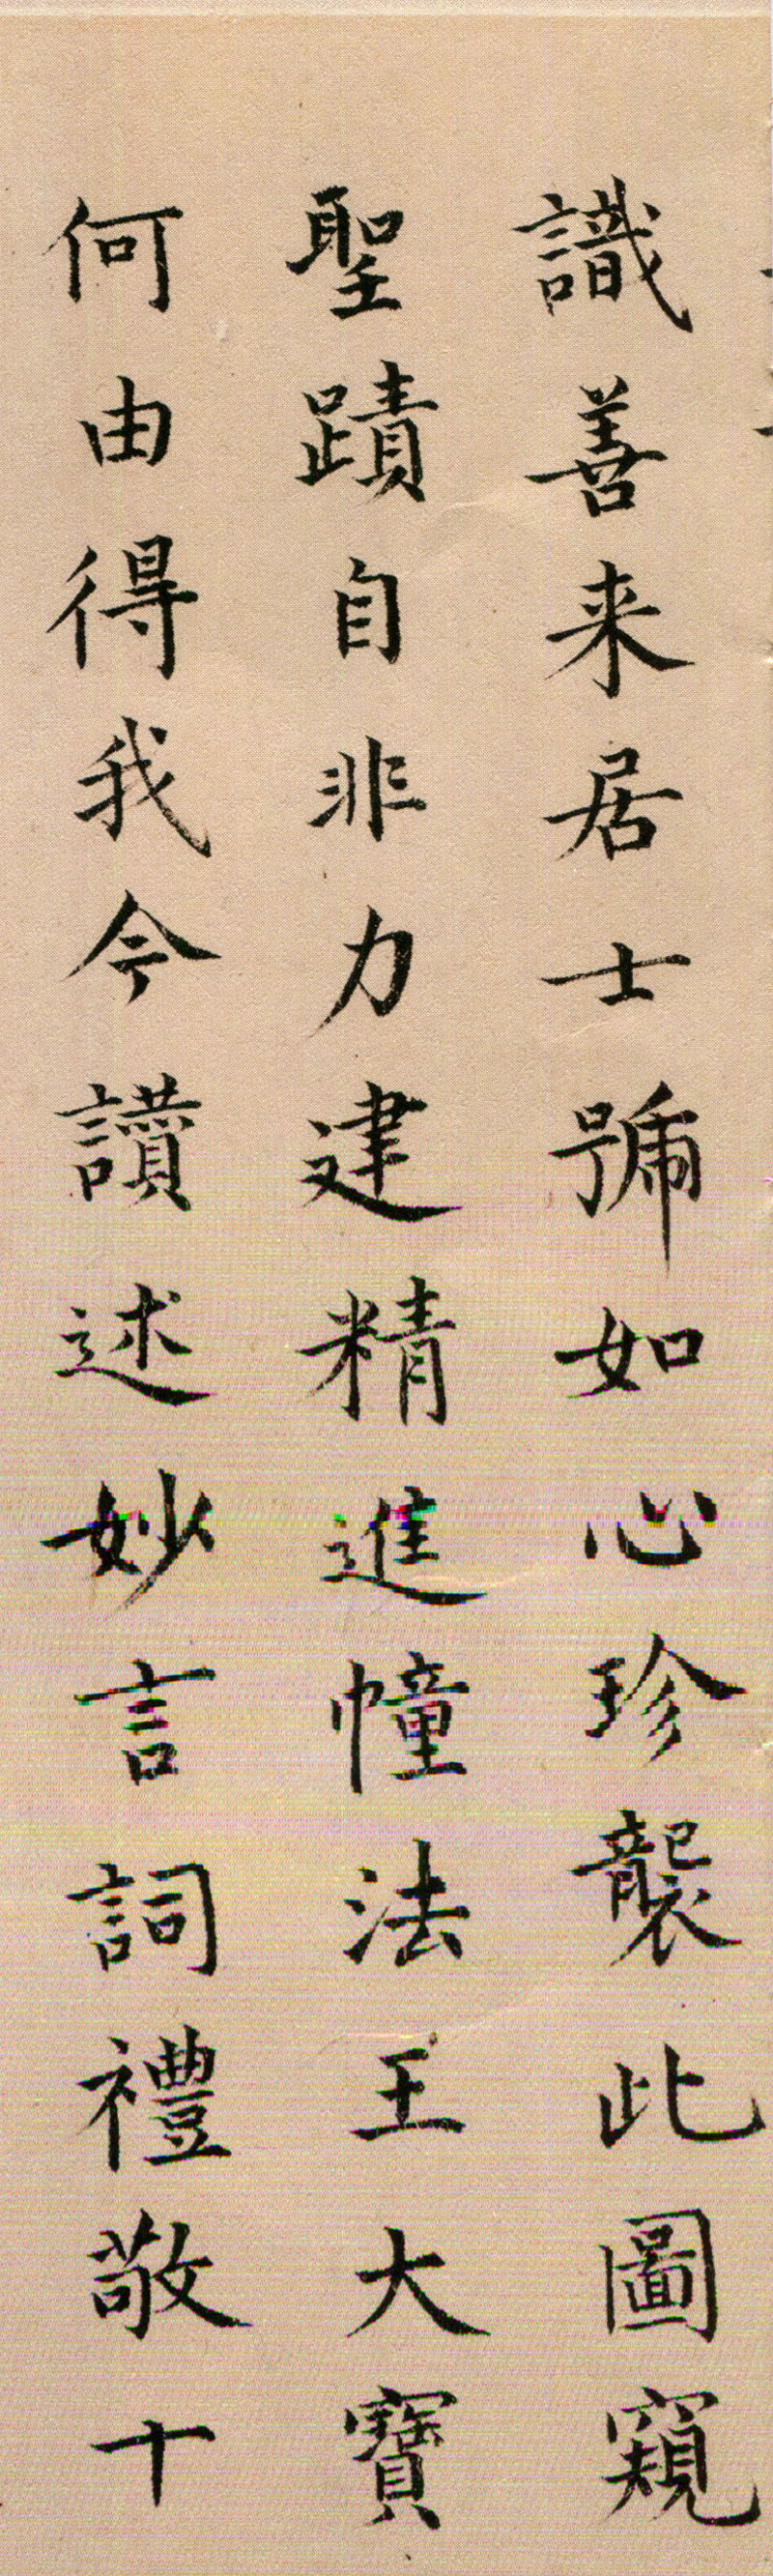 識善来居士號如心珍襲此圖窺
聖蹟自非力建精進幢法王大寶
何由得我今讚述妙言詞禮敬十